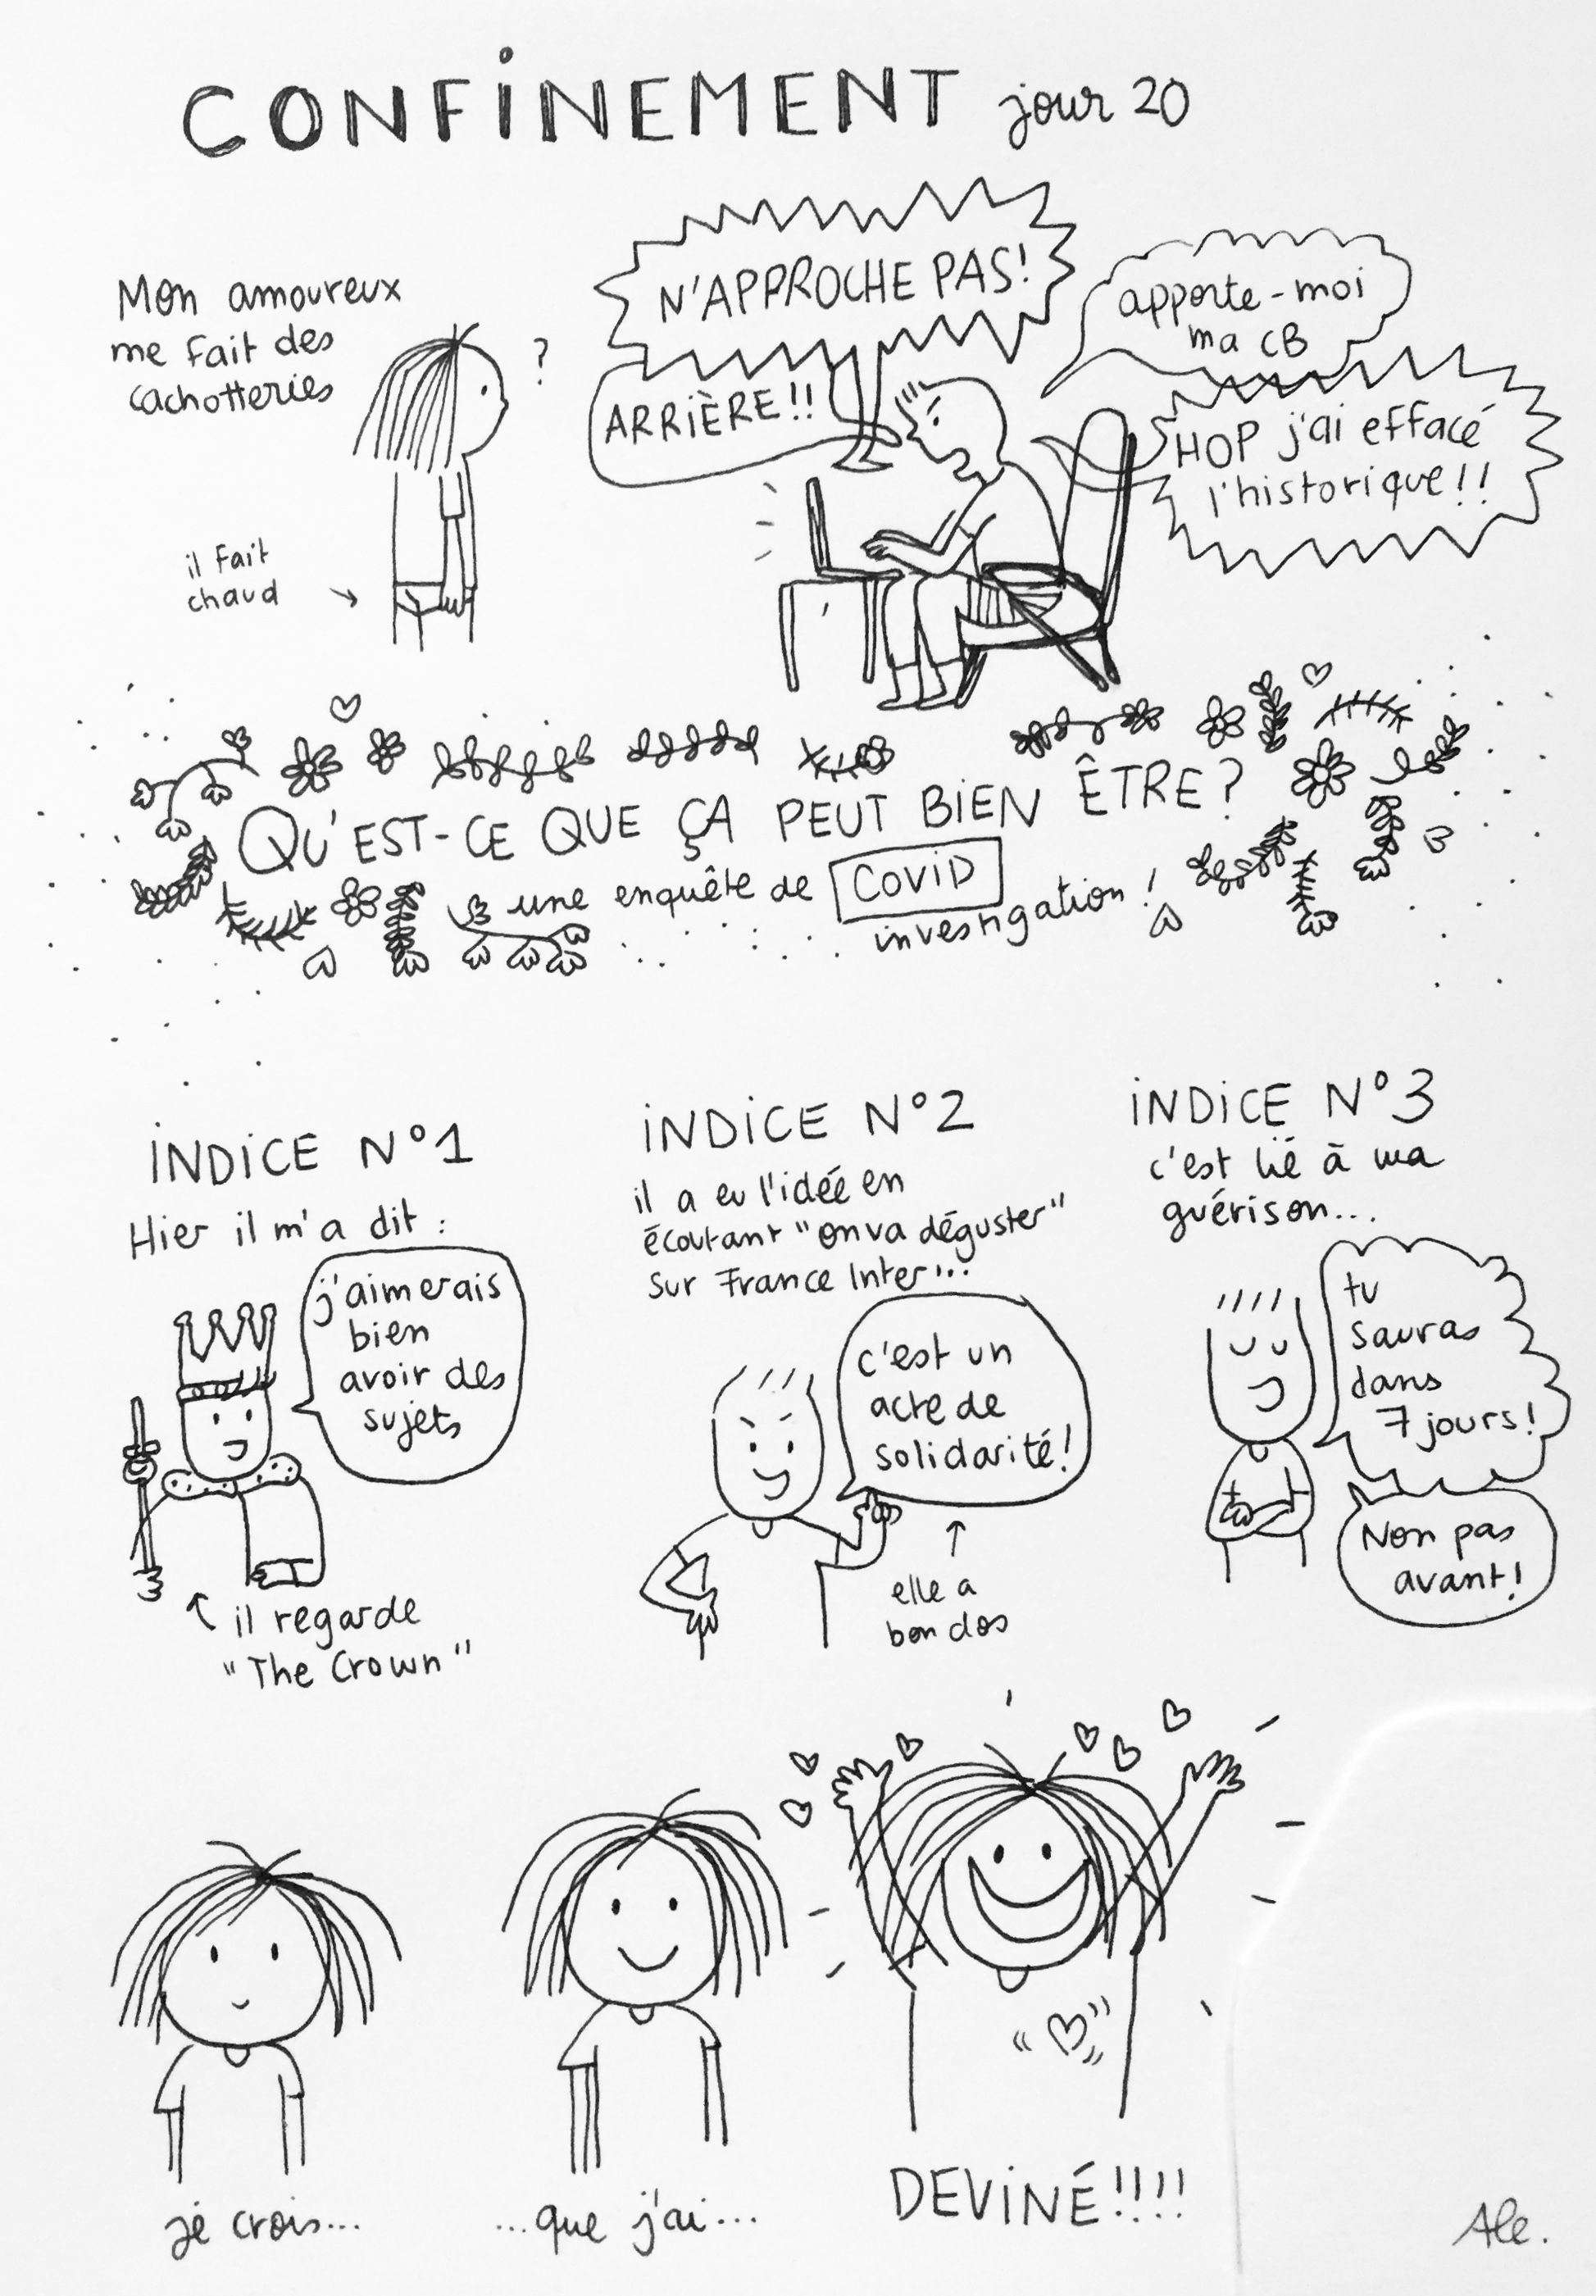 CONFINEMENT jour 20
Mon amoureux
me fait des
cachotteries
?
il fait
chaud
N'APPROCHE PAS!
ARRIÈRE!!
apporte-moi
ma CB
HOP j'ai effacé
l'historique!!
QU'EST-CE QUE ÇA PEUT BIEN ÊTRE?
une enquête de COVID
investigation!
INDICE N°1
Hier il m'a dit :
j'aimerais
bien
avoir des
sujets
il regarde
"The Crown"
INDICE N°2
il a eu l'idée en
écoutant "on va déguster"
sur France Inter...
c'est un
acte de
solidarité!
elle a
bon dos
INDICE N°3
c'est lié à ma
guérison...
tu
sauras
dans
7 jours!
Non pas
avant!
je crois...
...que j'ai...
DEVINÉ!!!!
Ale.